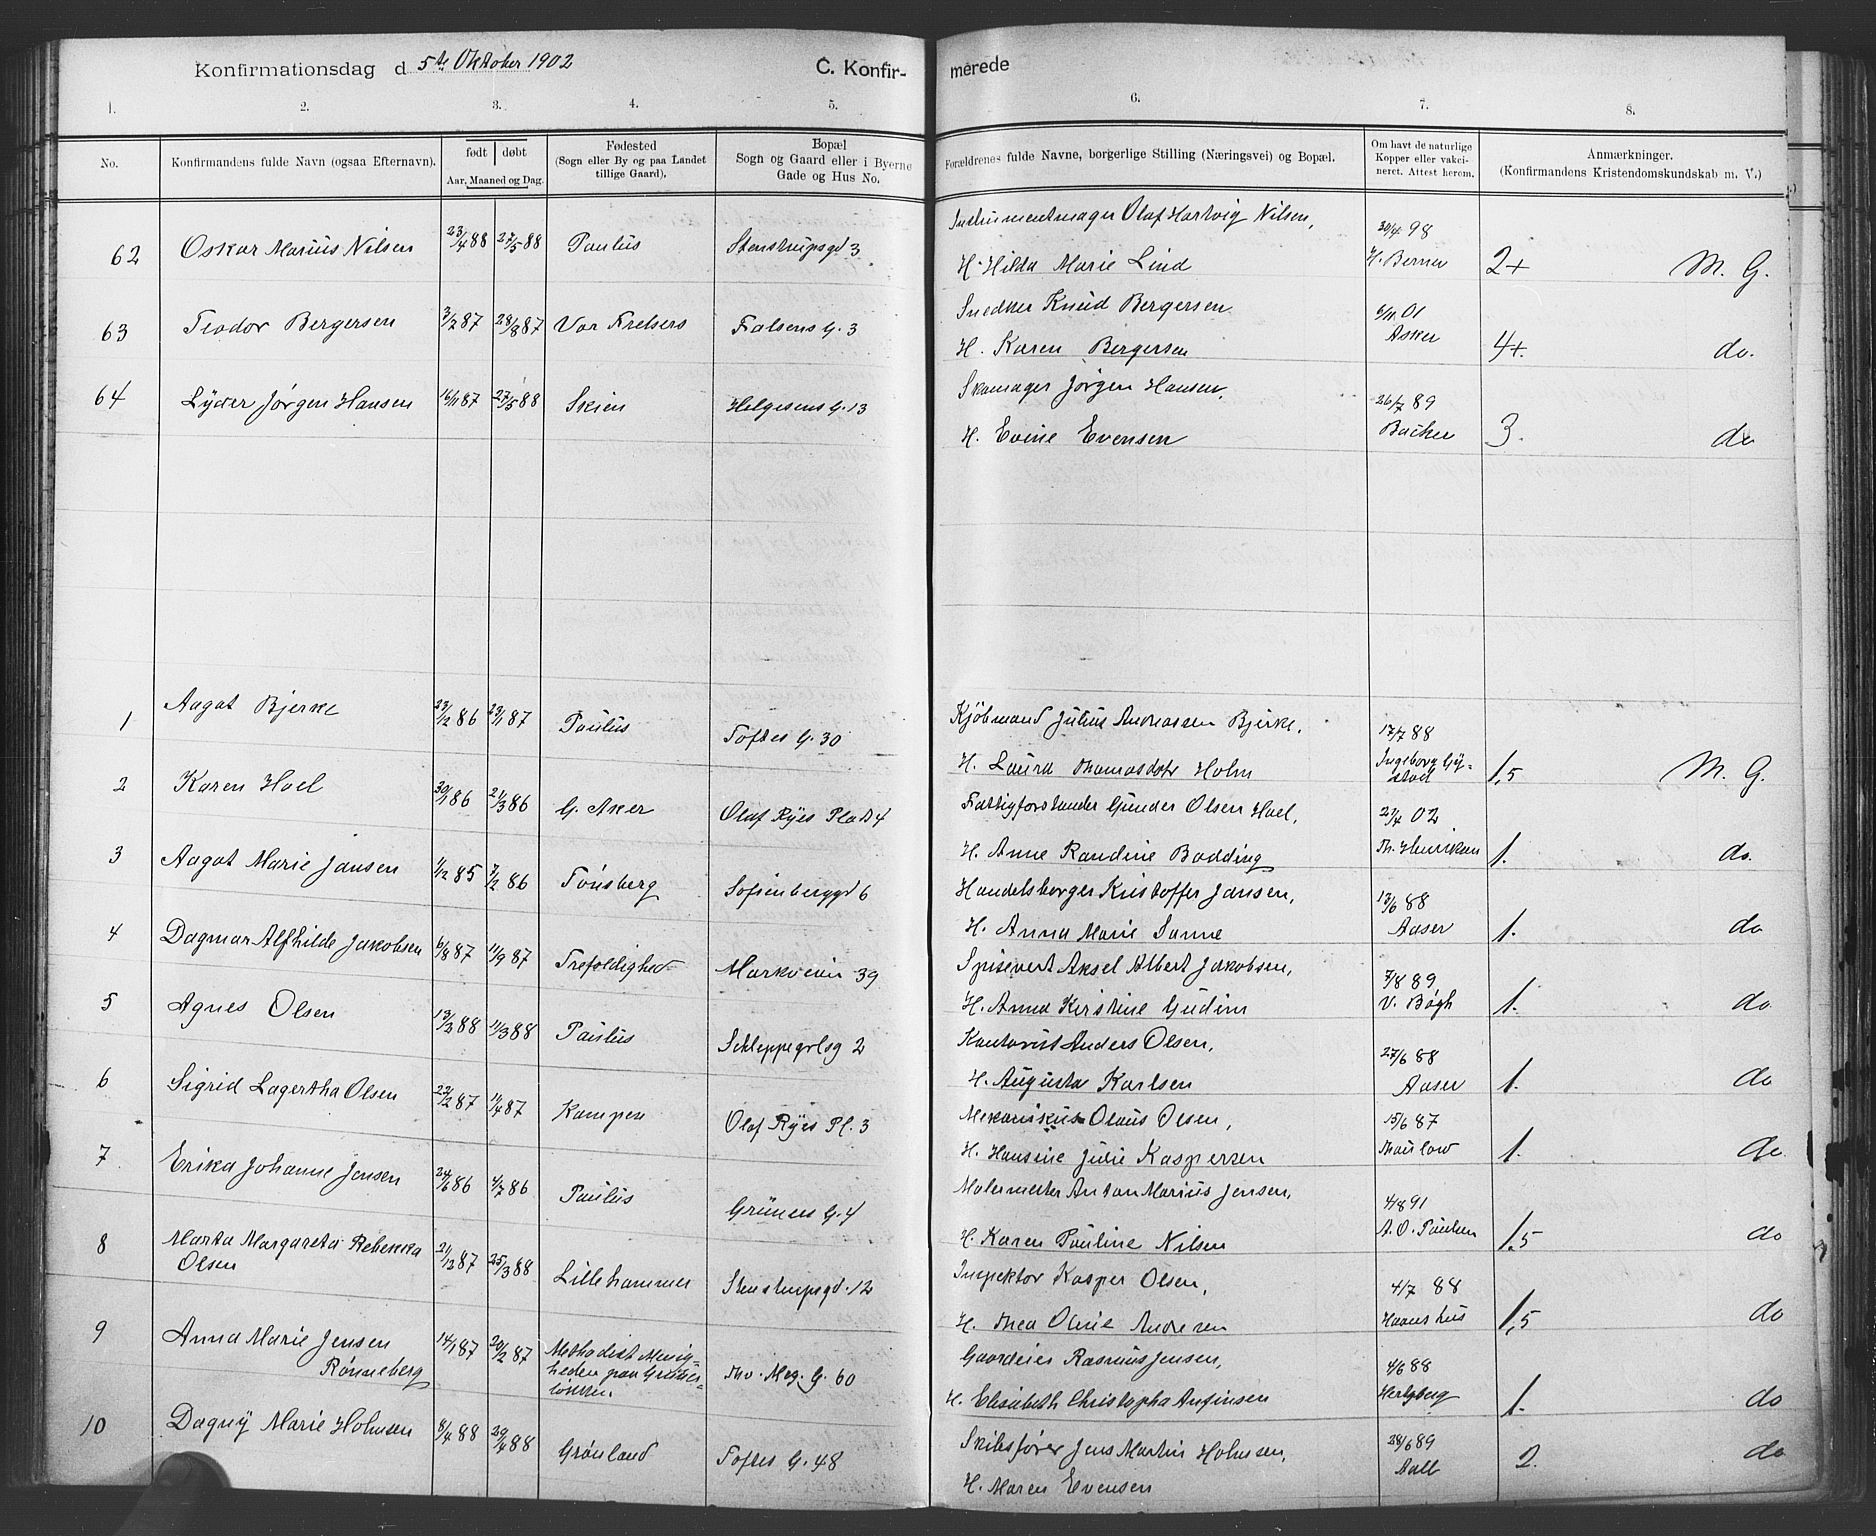 Konfirmationsdag d 5te Oktober 1902 C. Konfir- merede
1. 2. 3. 4. 5. 6. 7. 8.
No. Konfirmandens fulde Navn (ogsaa Efternavn). født døbt Aar, Maaned og Dag. Fødested (Sogn eller By og paa Landet tillige Gaard). Bopæl Sogn og Gaard eller i Byerne Gade og Hus No. Forældrenes fulde Navne, borgerlige Stilling (Næringsvei) og Bopæl. Om havt de naturlige Kopper eller vakcineret. Attest herom. Anmærkninger. (Konfirmandens Kristendomskundskab m. V.)
62 Oskar Marius Nilsen 23/4 88 27/5 88 Paulus Stenstrupsgd 3 Instrumentmager Olaf Hartvig Nilsen, 30/4 98
H. Hilda Marie Lind H. Berner 2+ M. G.
63 Teodor Bergersen 3/2 87 28/8 87 Vor Frelsers Falsens G. 3 Snedker Knud Bergersen 6/11 01
H. Karen Bergersen Asker 4+. do.
64 Lyder Jørgen Hansen 16/11 87 27/5 88 Skien Helgesens G. 13 Skomager Jørgen Hansen, 26/7 89
H. Evine Evensen Backer 3. do
1 Aagot Bjerke 23/12 86 23/1 87 Paulus Toftes G. 30 Kjøbmand Julius Andreassen Bjerke, 17/7 88
H. Laura Thomasdtr Holm Ingeborg Gystad 1,5 M. G.
2 Karen Hoel 30/1 86 21/3 86 G. Aker Olaf Ryes Plads 4 Fattigforstander Gunder Olsen Hoel, 21/4 02
H. Anne Randine Bodding Th. Henriksen 1. do.
3 Aagot Marie Jansen 1/12 85 7/2 86 Tönsberg Sofienberggd 6 Handelsborger Kristoffer Jansen, 13/6 88
H. Anna Marie Sanne Aaser 1. do
4 Dagmar Alfhilde Jakobsen 6/8 87 11/9 87 Trefoldighed Markveien 39 Spisevert Aksel Albert Jakobsen, 7/8 89
H. Anna Kirstine Gudim V. Bögh 1. do
5 Agnes Olsen 13/3 88 11/3 88 Paulus Schleppegrlsg 2 Kontorist Anders Olsen, 27/6 88
H. Augusta Karlsen Aaser 1. do
6 Sigrid Lagertha Olsen 22/2 87 11/4 87 Kampen Olaf Ryes Pl. 3 Mekanikus Olaus Olsen, 15/6 87
H. Hansine Julie Kaspersen Thaulow 1. do
7 Erika Johanne Jensen 24/6 86 4/7 86 Paulus Grüners G. 4 Malermester Anton Marius Jensen, 4/8 91
H. Karen Pauline Nilsen A. O. Paulsen 1,5 do
8 Marta Margareta Rebekka
Olsen 21/12 87 25/3 88 Lillehammer Stenstrupsgd. 12 Inspektor Kasper Olsen, 4/7 88
H. Thea Oline Andresen 1,5 do
9 Anna Marie Jensen
Rønneberg 14/1 87 20/2 87 Methodist Menigheden paa Grünerløkken Th. Mey. G. 60 Gaardeier Rasmus Jensen, 4/6 88
H. Elisabeth Christopha Anfinsen Hertzberg 1. do
10 Dagny Marie Holmsen 8/4 88 29/4 88 Grønland Toftes G. 48 Skibsfører Jens Martin Holmsen, 28/6 89
H. Maren Evensen Aall 2. do